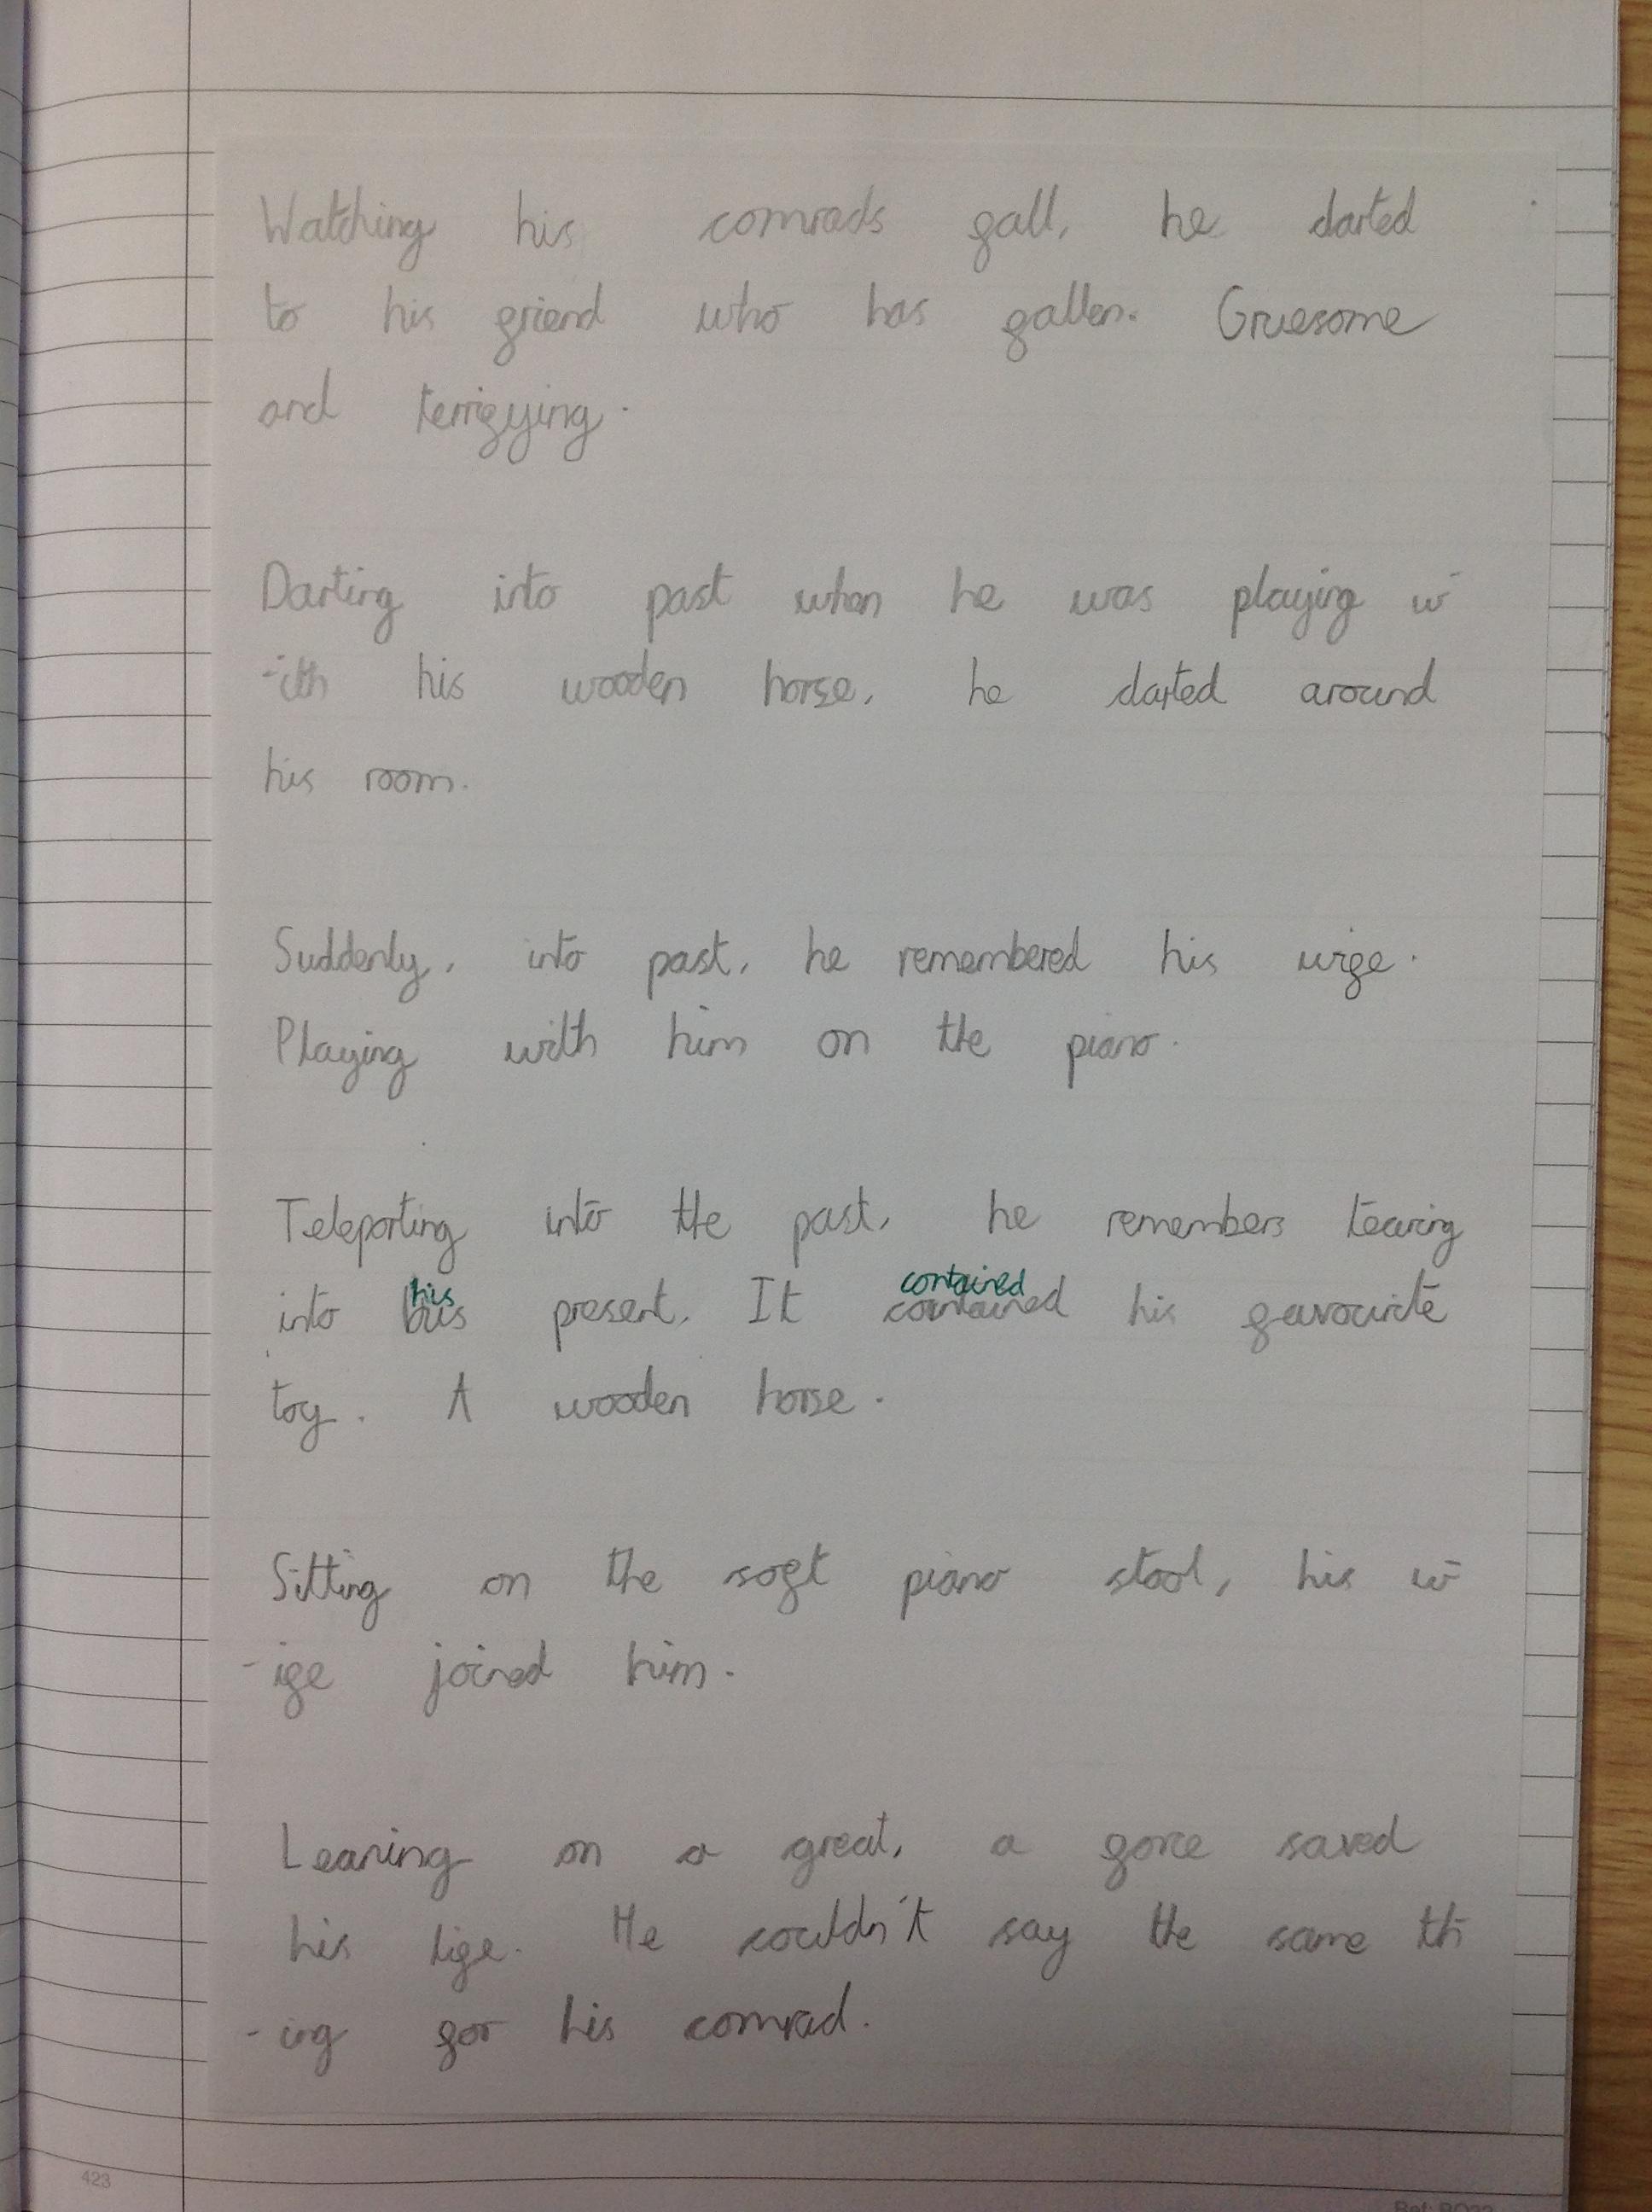 Watching his comrads fall, he darted
to his friend who has fallen. Gruesome
and terrifying.
Darting into past when he was playing w-
-ith his wooden horse, he darted around
his room.
Suddenly, into past, he remembered his wife.
Playing with him on the piano.
Teleporting into the past, he remembers tearing
his contained
into his present. It contained his favourite
toy. A wooden horse.
Sitting on the soft piano stool, his w-
-ife joined him.
Leaning on a great, a force saved
his life. He couldn't say the same th-
-ing for his comrad.
423